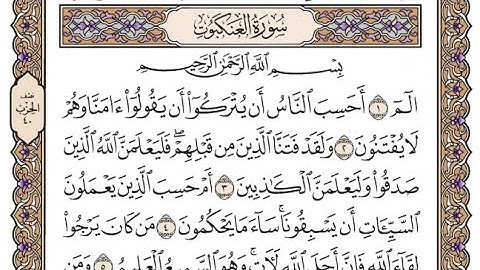 سُورَةُ العَنكَبُوتِ
بِسْمِ ٱللَّهِ ٱلرَّحْمَٰنِ ٱلرَّحِيمِ
الٓمٓ ١ أَحَسِبَ ٱلنَّاسُ أَن يُتْرَكُوٓا۟ أَن يَقُولُوٓا۟ ءَامَنَّا وَهُمْ
نصف الحزب ٤٠
لَا يُفْتَنُونَ ٢ وَلَقَدْ فَتَنَّا ٱلَّذِينَ مِن قَبْلِهِمْ ۖ فَلَيَعْلَمَنَّ ٱللَّهُ ٱلَّذِينَ
صَدَقُوا۟ وَلَيَعْلَمَنَّ ٱلْكَٰذِبِينَ ٣ أَمْ حَسِبَ ٱلَّذِينَ يَعْمَلُونَ
ٱلسَّيِّـَٔاتِ أَن يَسْبِقُونَا ۚ سَآءَ مَا يَحْكُمُونَ ٤ مَن كَانَ يَرْجُوا۟
لِقَآءَ ٱللَّهِ فَإِنَّ أَجَلَ ٱللَّهِ لَءَاتٍ ۚ وَهُوَ ٱلسَّمِيعُ ٱلْعَلِيمُ ٥ وَمَن